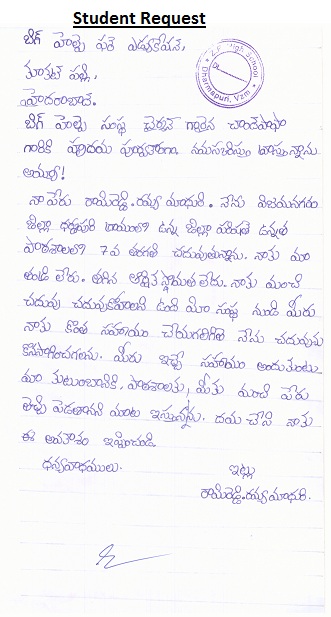 Student Request
బిగ్ హెల్ప్ ఫర్ ఎడ్యుకేషన్,
హైదరాబాద్.
Z.P. High School
Dharmapuri, Vzm
బిగ్ హెల్ప్ సంస్థ చైర్మన్ గారైన చాంద్‌పాషా
గారికి హృదయ పూర్వకంగా నమస్కరిస్తూ వ్రాస్తున్నాను
నా పేరు రామిరెడ్డి.రమ్య మాధురి. నేను విజయనగరం
జిల్లా ధర్మపురి గ్రామంలో ఉన్న జిల్లా పరిషత్ ఉన్నత
పాఠశాలలో 7వ తరగతి చదువుతున్నాను. నాకు మా
తండ్రి లేరు. తగిన ఆర్థిక స్తోమత లేదు. నాకు మంచి
చదువు చదువుకోవాలని ఉంది మీ సంస్థ నుండి మీరు
నాకు కొంత సహాయం చేయగలిగితే నేను చదువును
కొనసాగించగలను. మీరు ఇచ్చే సహాయం అందుకుంటు
మా కుటుంబానికి, పాఠశాలకు, మీకు మంచి పేరు
తెచ్చి పెడతానని మాట ఇస్తున్నాను. దయ చేసి నాకు
ఈ అవకాశం ఇప్పించండి
ధన్యవాదములు.
ఇట్లు
రామిరెడ్డి.రమ్య మాధురి.